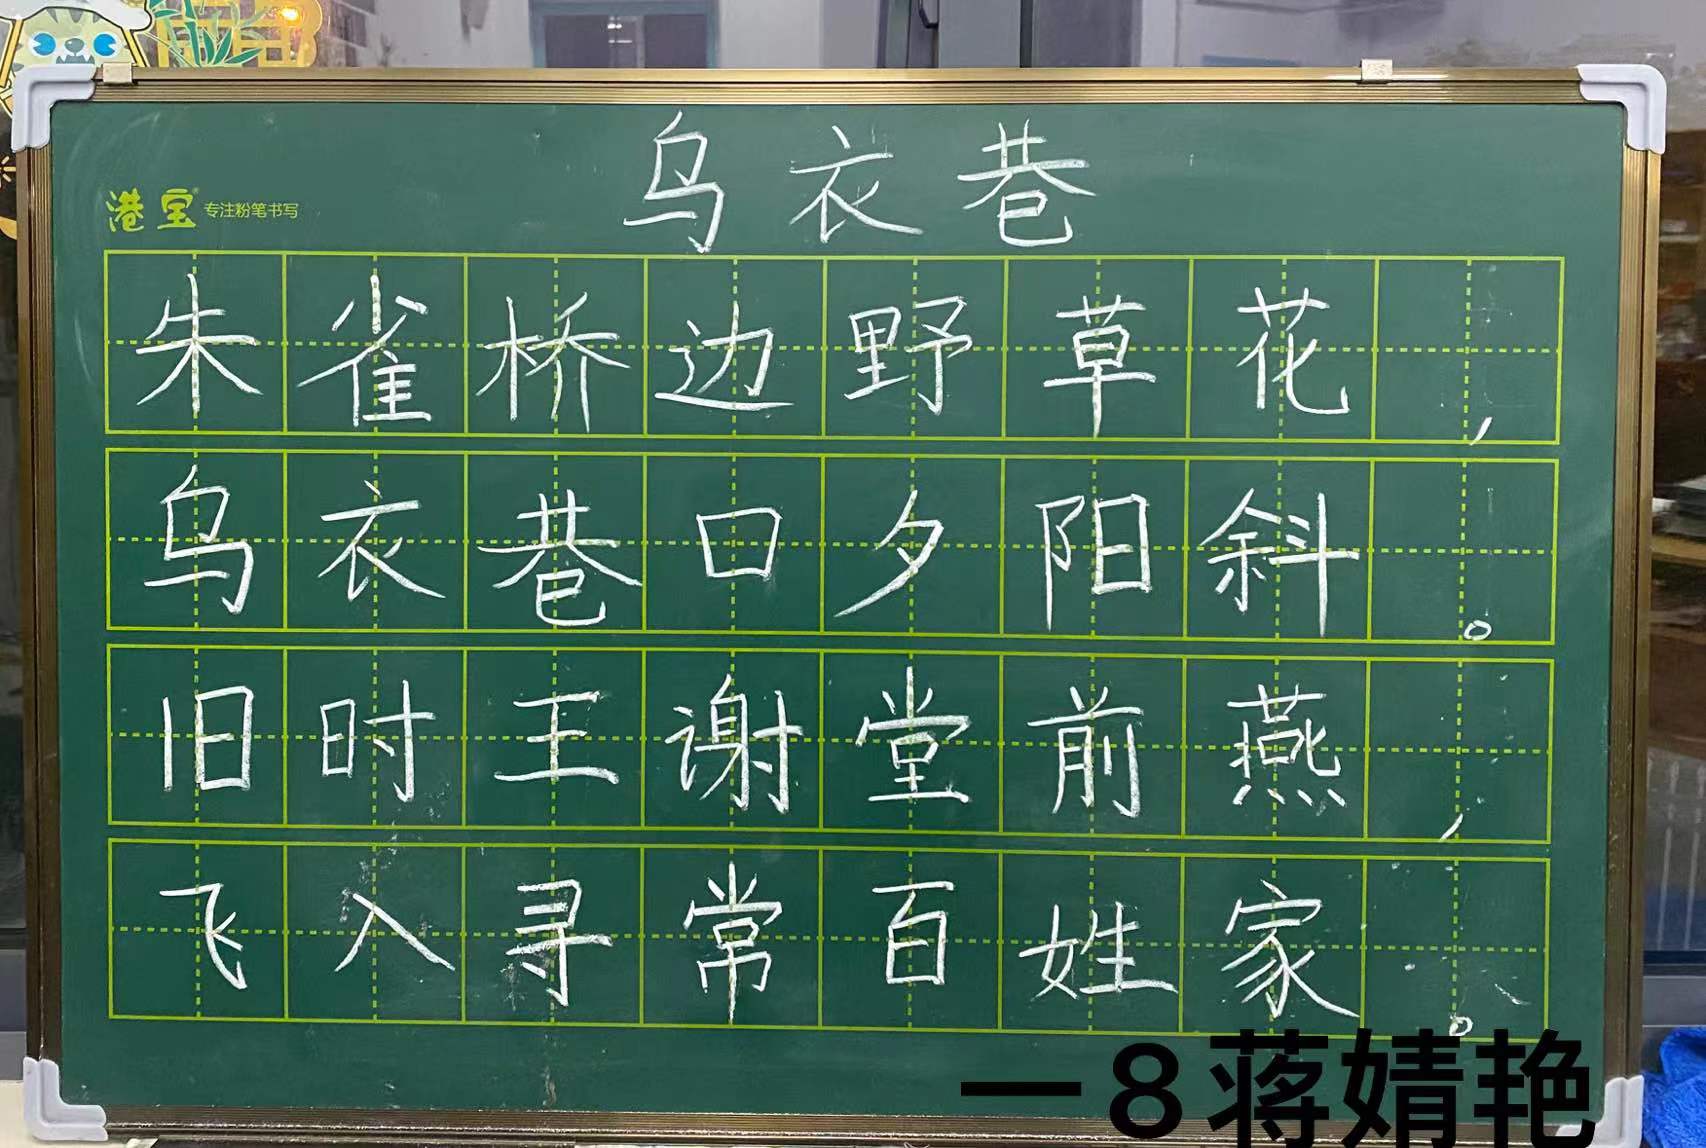 乌衣巷
港宝 专注粉笔书写
朱雀桥边野草花，
乌衣巷口夕阳斜。
旧时王谢堂前燕，
飞入寻常百姓家。
一8蒋婧艳